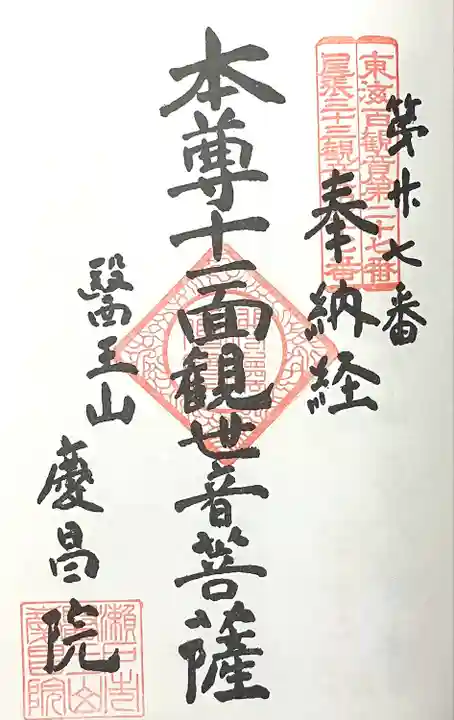 第廿七番
東海百観音第二十七番
尾張三十三観音
奉納経
本尊十一面観世音菩薩
醫王山
慶昌院
瀬戸市
慶昌院